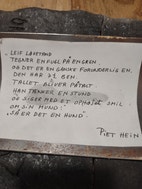 "LEIF LAVETAND
TEGNER EN FUGL PÅ EN GREN
OG DET ER EN GANSKE FORUNDERLIG EN.
DEN HAR 7½ BEN.
TALLET BLIVER PÅTALT
HAN TÆNKER EN STUND
OG SIGER MED ET OPHØJET SMIL
OM SIN HUND:
"SÅ ER DET EN HUND"
PIET HEIN